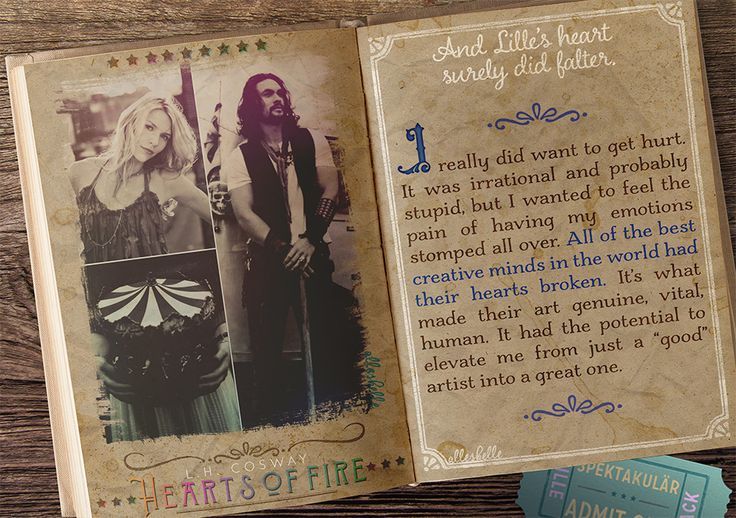 L.H. COSWAY
HEARTS OF FIRE
elleshelle
And Lille's heart
surely did falter.
I really did want to get hurt.
It was irrational and probably
stupid, but I wanted to feel the
pain of having my emotions
stomped all over. All of the best
creative minds in the world had
their hearts broken. It's what
made their art genuine, vital,
human. It had the potential to
elevate me from just a “good”
artist into a great one.
elleshelle
SPEKTAKULÄR
ADMIT